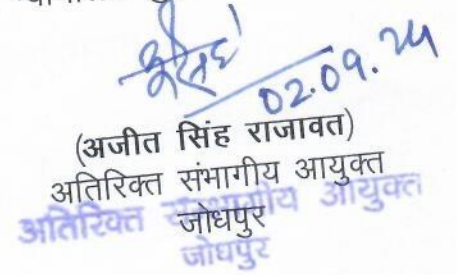 02.09.24
(अजीत सिंह राजावत)
अतिरिक्त संभागीय आयुक्त
जोधपुर
अतिरिक्त संभागीय आयुक्त
जोधपुर